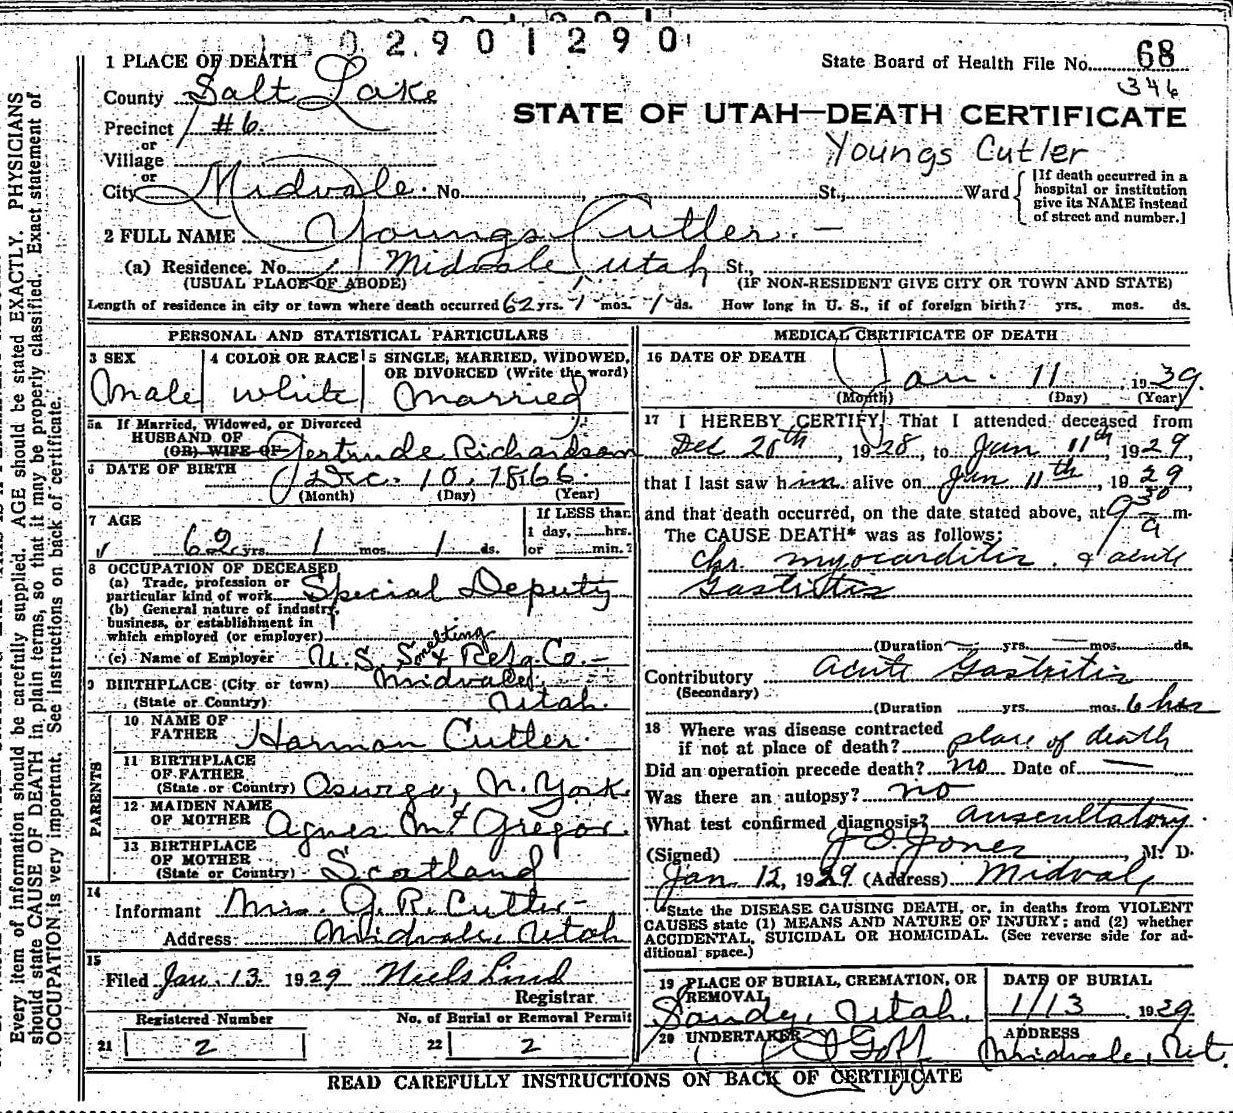 0 2 9 0 1 2 9 0
1 PLACE OF DEATH
State Board of Health File No. 68
346
County Salt Lake
STATE OF UTAH—DEATH CERTIFICATE
Precinct #6
or
Youngs Cutler
Village
or
City Midvale. No. St., Ward
[If death occurred in a
hospital or institution
give its NAME instead
of street and number.]
2 FULL NAME Youngs Cutler. —
(a) Residence. No. Midvale Utah St.,
(USUAL PLACE OF ABODE) (IF NON-RESIDENT GIVE CITY OR TOWN AND STATE)
Length of residence in city or town where death occurred 62 yrs. 1 mos. 1 ds. How long in U. S., if of foreign birth? yrs. mos. ds.
PERSONAL AND STATISTICAL PARTICULARS
3 SEX 4 COLOR OR RACE 5 SINGLE, MARRIED, WIDOWED,
OR DIVORCED (Write the word)
Male white Married
5a If Married, Widowed, or Divorced
HUSBAND OF
(OR) WIFE OF Gertrude Richardson
6 DATE OF BIRTH Dec. 10, 1866
(Month) (Day) (Year)
7 AGE If LESS than
1 day, hrs.
62 yrs. 1 mos. 1 ds. or min.?
8 OCCUPATION OF DECEASED
(a) Trade, profession or
particular kind of work Special Deputy
(b) General nature of industry,
business, or establishment in
which employed (or employer)
(c) Name of Employer U.S. Smelting & Refg. Co. —
9 BIRTHPLACE (City or town) Midvale,
(State or Country) Utah.
PARENTS
10 NAME OF
FATHER Harman Cutler.
11 BIRTHPLACE
OF FATHER
(State or Country) Oswego, N. York
12 MAIDEN NAME
OF MOTHER Agnes Mc Gregor.
13 BIRTHPLACE
OF MOTHER
(State or Country) Scotland
14
Informant Mrs. G. R. Cutler
Address Midvale, Utah
15
Filed Jan. 13. 1929 Niels Lind
Registrar
Registered Number No. of Burial or Removal Permit
21 2 22 2
MEDICAL CERTIFICATE OF DEATH
16 DATE OF DEATH
Jan. 11, 1929.
(Month) (Day) (Year)
17 I HEREBY CERTIFY, That I attended deceased from
Dec 20th, 1928, to Jan 11th 1929,
that I last saw him alive on Jan 11th, 1929,
and that death occurred, on the date stated above, at 9 30 a m.
The CAUSE DEATH* was as follows:
Chr. myocarditis. & acute
Gastritis
(Duration — yrs. — mos. ds.
Contributory Acute Gastritis
(Secondary)
(Duration yrs. mos. 6 hrs
18 Where was disease contracted
if not at place of death? place of death
Did an operation precede death? no Date of —
Was there an autopsy? no
What test confirmed diagnosis? auscultatory.
(Signed) J O Jones M. D.
Jan 12, 1929 (Address) Midvale
*State the DISEASE CAUSING DEATH, or, in deaths from VIOLENT
CAUSES state (1) MEANS AND NATURE OF INJURY; and (2) whether
ACCIDENTAL, SUICIDAL OR HOMICIDAL. (See reverse side for ad-
ditional space.)
19 PLACE OF BURIAL, CREMATION, OR
REMOVAL
Sandy, Utah.
DATE OF BURIAL
1/13 1929
20 UNDERTAKER Goff
ADDRESS
Midvale, Ut.
READ CAREFULLY INSTRUCTIONS ON BACK OF CERTIFICATE
Every item of information should be carefully supplied. AGE should be stated EXACTLY. PHYSICIANS
should state CAUSE OF DEATH in plain terms, so that it may be properly classified. Exact statement of
OCCUPATION is very important. See instructions on back of certificate.